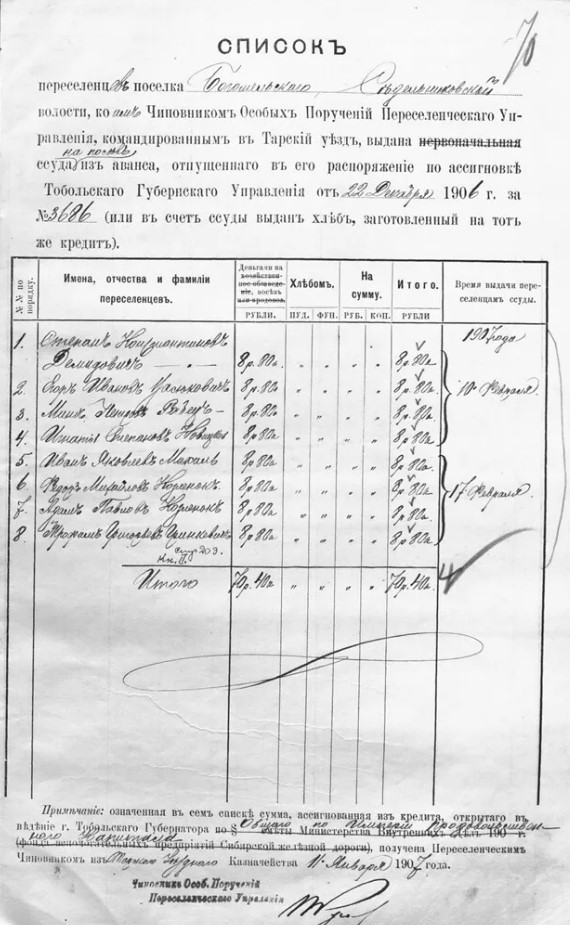 70
СПИСОКЪ
переселенцовъ поселка Богомельскаго, Седельниковской
волости, коимъ Чиновникомъ Особыхъ Порученій Переселенческаго Уп-
равленія, командированнымъ въ Тарскій уѣздъ, выдана первоначальная
на посѣвъ
ссуда изъ аванса, отпущеннаго въ его распоряженіе по ассигновкѣ
Тобольскаго Губернскаго Управленія отъ 22 Декабря 1906 г. за
№ 3686 (или въ счетъ ссуды выданъ хлѣбъ, заготовленный на тотъ
же кредитъ).
№№ по порядку. Имена, отчества и фамиліи переселенцевъ. Деньгами на хозяйственное обзаведеніе, посѣвъ или продовол. Хлѣбомъ. На сумму. Итого. Время выдачи переселенцамъ ссуды.
РУБЛИ. ПУД. ФУН. РУБ. КОП. РУБЛИ
1. Степанъ Константиновъ 1907 года
Демидовичъ 8 р. 80 к. 8 р. 80 к.
2. Егоръ Ивановъ 8 р. 80 к. 8 р. 80 к. 10 Февраля
3. 8 р. 80 к. 8 р. 80 к.
4. Игнатій Степановъ Новицкій 8 р. 80 к. 8 р. 80 к.
5. Иванъ Яковлевъ 8 р. 80 к. 8 р. 80 к.
6 Федоръ Михайловъ Корженокъ 8 р. 80 к. 8 р. 80 к. 17 Февраля
7. Адамъ Павловъ Корженокъ 8 р. 80 к. 8 р. 80 к.
8 Трофимъ Григорьевъ Гринкевичъ 8 р. 80 к. 8 р. 80 к.
Итого 70 р. 40 к. 70 р. 40 к.
Примѣчаніе: означенная въ семъ спискѣ сумма, ассигнованная изъ кредита, открытаго въ
вѣдѣніе г. Тобольскаго Губернатора по § Общаго по Имперіи продовольствен-
смѣты Министерства Внутреннихъ Дѣлъ 190 г.
наго Капитала
(фонда вспомогательныхъ предпріятій Сибирской желѣзной дороги), получена Переселенческимъ
Чиновникомъ изъ Казначейства 11 Января 1907 года.
Чиновникъ Особ. Порученій
Переселенческаго Управленія